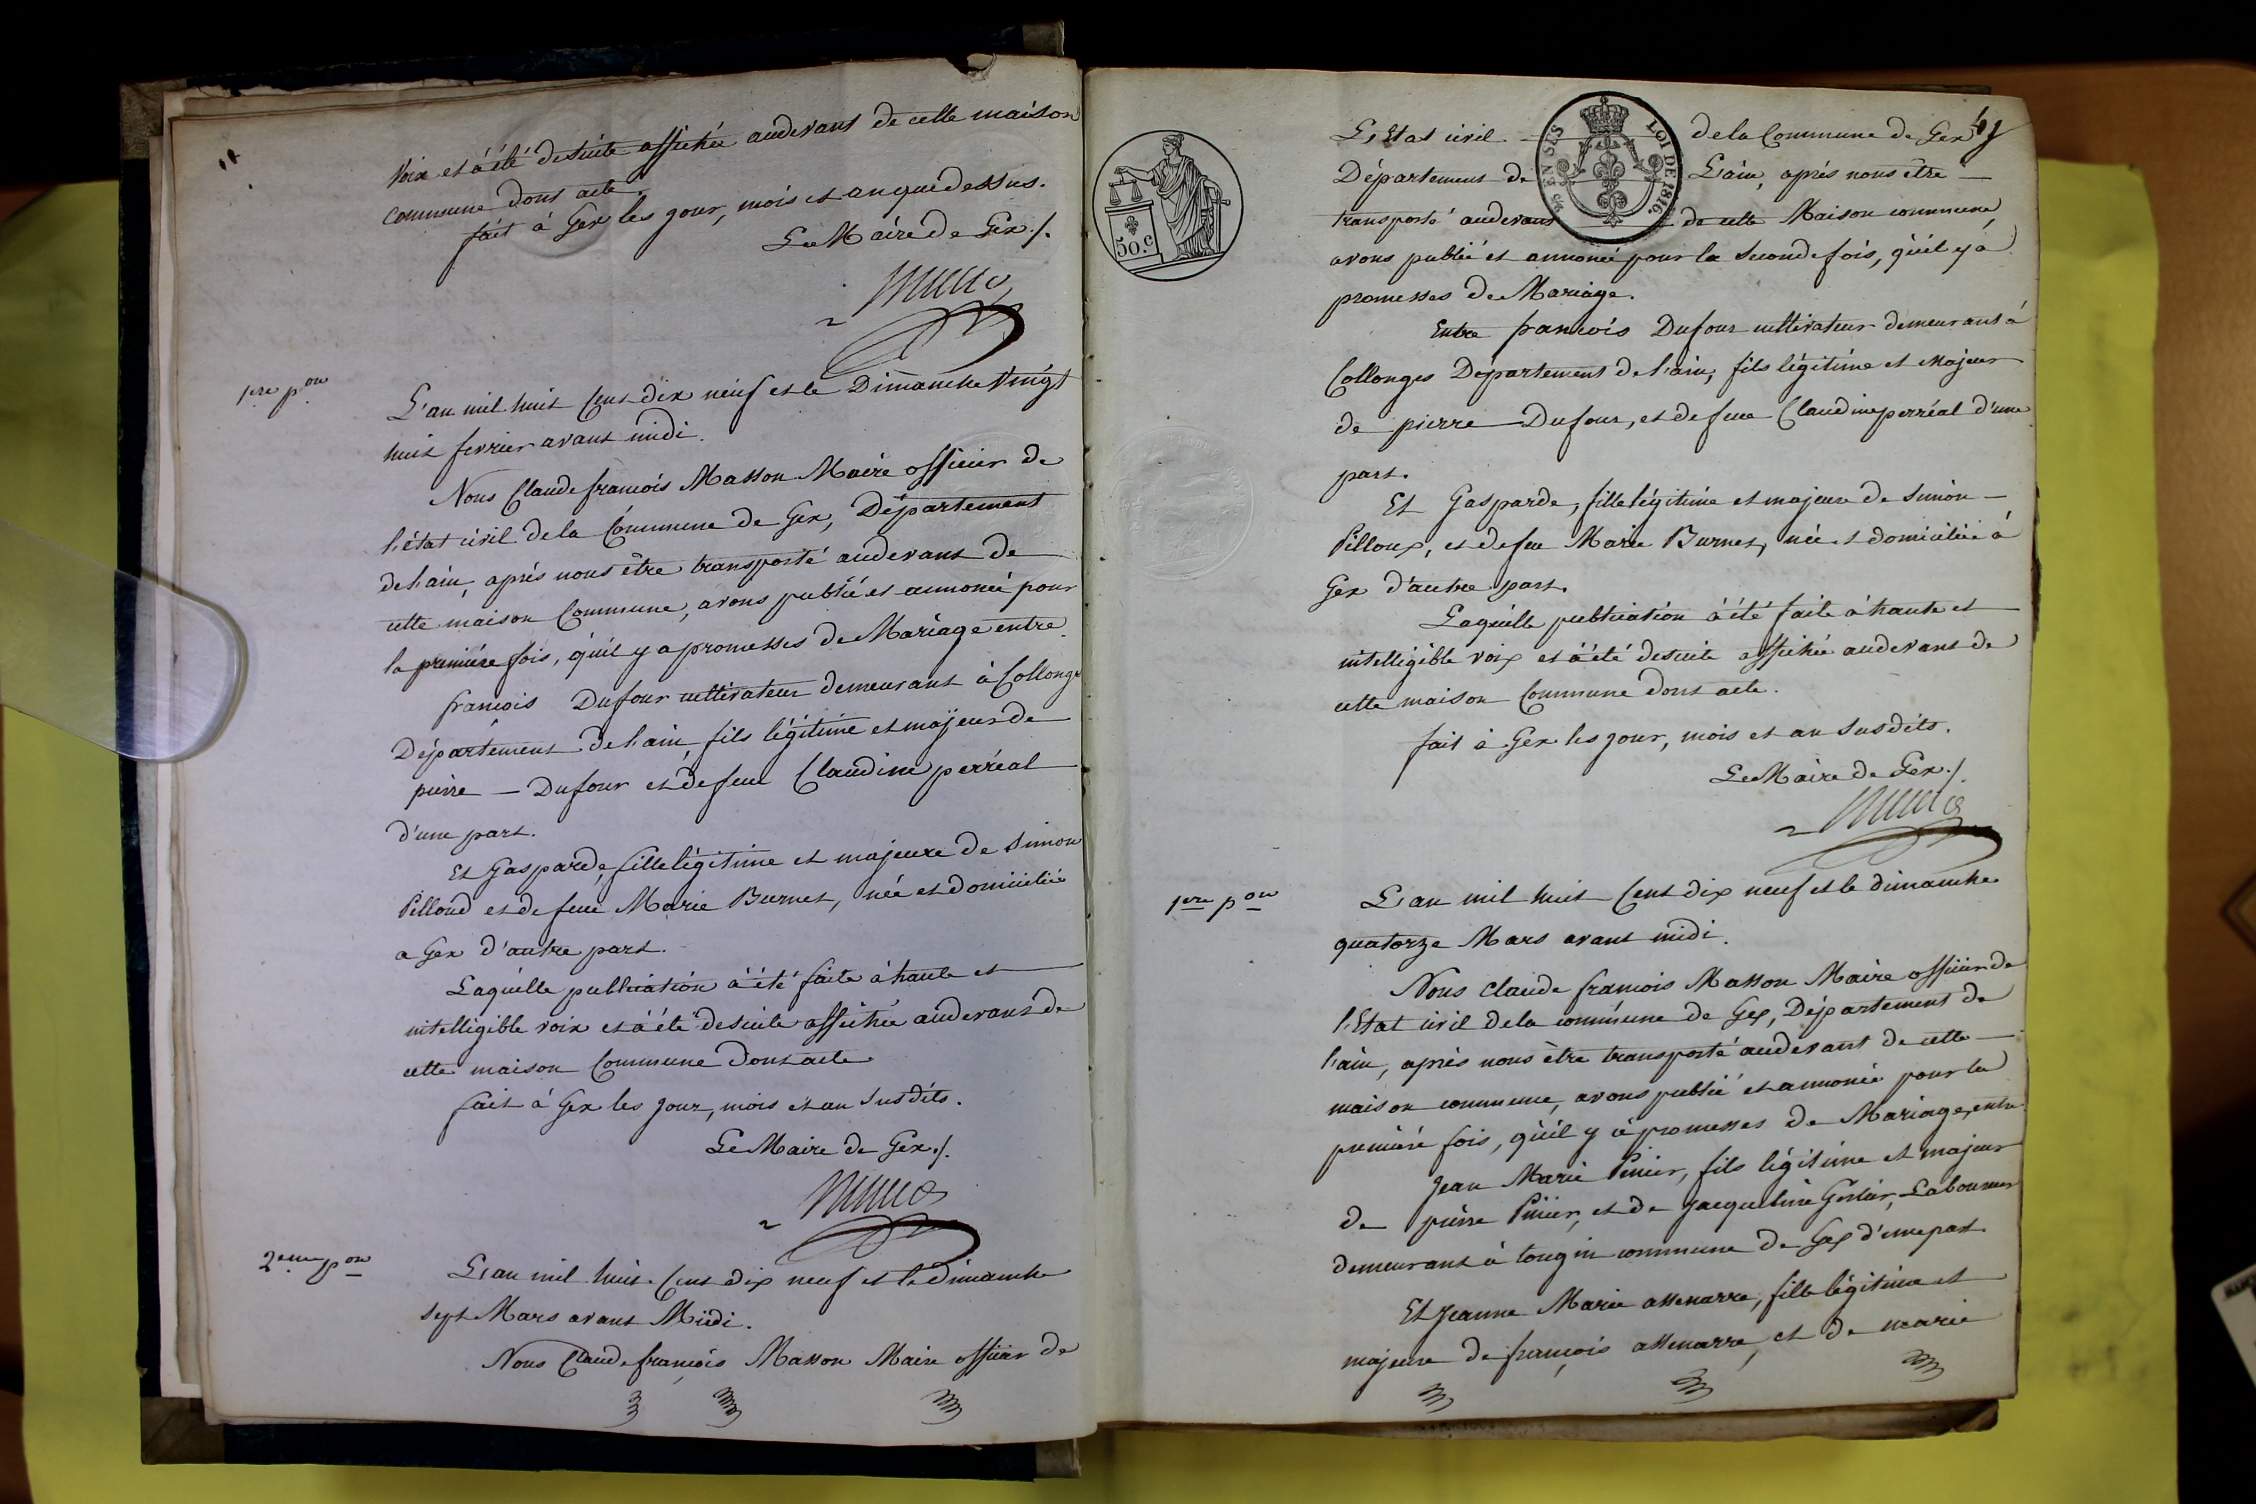 voix et à été desuite affichée audevant de cette maison
commune dont acte.
fait à Gex les jour, mois et an que dessus.
Le Maire de Gex ./.
1ere pon
L'an mil huit Cent dix neuf et le Dimanche Vingt
huit fevrier avant midi.
Nous Claude françois Masson Maire officier de
l'état civil de la Commune de Gex, Département
de l'ain, après nous être transporté audevant de
cette maison Commune, avons publié et annoncé pour
la première fois, qu'il y a promesses de Mariage entre
françois Dufour cultivateur demeurant à Collonge
Département de l'ain, fils légitime et majeur de
pierre — Dufour et de feue Claudine perréal
d'une part.
Et Gasparde, fille légitime et majeure de Simon
Pilloud et de feue Marie Burnet, née et domiciliée
a Gex d'autre part.
Laquelle publication à été faite à haute et
intelligible voix et à été desuite affichée audevant de
cette maison Commune dont acte
fait à Gex les jour, mois et an susdits.
Le Maire de Gex ./.
2eme pon
L'an mil huit Cent dix neuf et le dimanche
sept Mars avant Midi.
Nous Claude françois Masson Maire officier de
50.c
EN SUS
LOI DE 1816.
L'Etat civil de la Commune de Gex
Département de L'ain, après nous être
transporté audevant de cette Maison commune,
avons publié et annoncé pour la seconde fois, qu'il y à
promesses de Mariage.
Entre francois Dufour cultivateur demeurant à
Collonges Département de l'ain, fils légitime et majeur
de pierre Dufour, et de feue Claudine perréal d'une
part.
Et Gasparde, fille légitime et majeure de Simon —
Pilloux, et de feu Marie Burnet, née et domiciliée à
Gex d'autre part.
Laquelle publication à été faite à haute et
intelligible voix et à été desuite affichée audevant de
cette maison Commune dont acte.
fait à Gex les jour, mois et an Susdits.
Le Maire de Gex ./.
1ere pon
L'an mil huit Cent dix neuf et le dimanche
quatorze Mars avant midi.
Nous claude francois Masson Maire officier de
l'Etat civil de la commune de Gex, Département de
l'ain, après nous être transporté audevant de cette —
maison commune, avons publié et annoncé pour la
première fois, qu'il y à promesses de Mariage, entre
Jean Marie Pinier, fils légitime et majeur
de pierre Pinier, et de Jacqueline Laboureur
demeurant à tougin commune de Gex d'une part
Et Jeanne Marie assenarre, fille légitime et
majeure de françois assenarre, et de marie